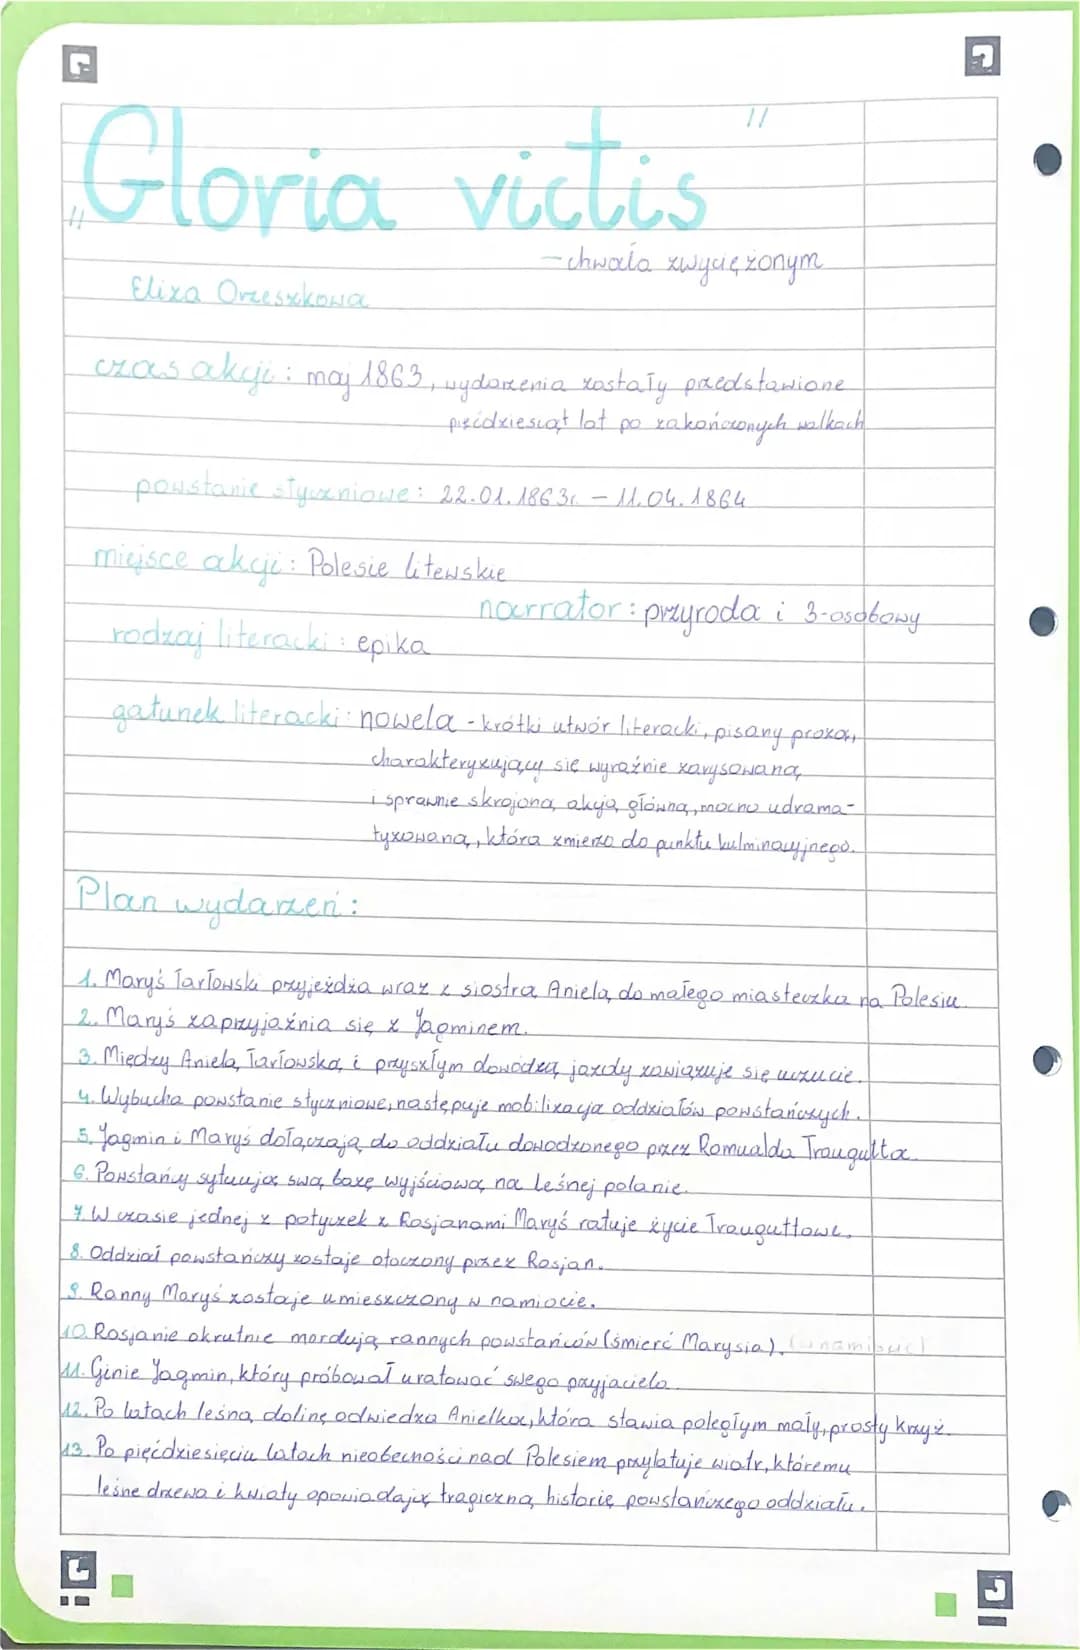 „Gloria victis"
- chwała zwyciężonym
Eliza Orzeszkowa
czas akcji: maj 1863, wydarzenia zostały przedstawione
pięćdziesiąt lat po zakończonych walkach
powstanie styczniowe: 22.01.1863r. - 11.04.1864
miejsce akcji: Polesie litewskie
narrator: przyroda i 3-osobowy
rodzaj literacki: epika
gatunek literacki: nowela - krótki utwór literacki, pisany prozą,
charakteryzujący się wyraźnie zarysowaną
i sprawnie skrojoną akcją główną, mocno udrama-
tyzowaną, która zmierza do punktu kulminacyjnego.
Plan wydarzeń:
1. Maryś Tarłowski przyjeżdża wraz z siostrą Anielą do małego miasteczka na Polesiu.
2. Maryś zaprzyjaźnia się z Jagminem.
3. Między Anielą Tarłowską i przyszłym dowódcą jazdy zawiązuje się uczucie.
4. Wybucha powstanie styczniowe, następuje mobilizacja oddziałów powstańczych.
5. Jagmin i Maryś dołączają do oddziału dowodzonego przez Romualda Traugutta.
6. Powstańcy sytuują swą bazę wyjściową na leśnej polanie.
7. W czasie jednej z potyczek z Rosjanami Maryś ratuje życie Trauguttowi.
8. Oddział powstańczy zostaje otoczony przez Rosjan.
9. Ranny Maryś zostaje umieszczony w namiocie.
10. Rosjanie okrutnie mordują rannych powstańców (śmierć Marysia).
11. Ginie Jagmin, który próbował uratować swego przyjaciela.
12. Po latach leśną dolinę odwiedza Anielka, która stawia poległym mały, prosty krzyż.
13. Po pięćdziesięciu latach nieobecności nad Polesiem przylatuje wiatr, któremu
leśne drzewa i kwiaty opowiadają tragiczną historię powstańczego oddziału.